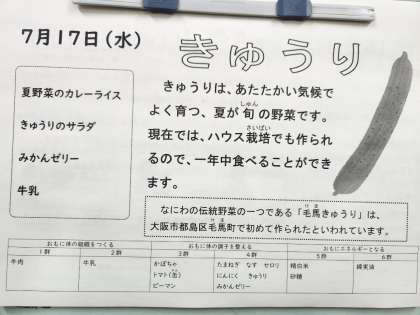 7月17日(水)
きゅうり
夏野菜のカレーライス
きゅうりのサラダ
みかんゼリー
牛乳
きゅうりは、あたたかい気候で
よく育つ、夏が旬の野菜です。
現在では、ハウス栽培でも作られ
るので、一年中食べることができ
ます。
なにわの伝統野菜の一つである「毛馬きゅうり」は、
大阪市都島区毛馬町で初めて作られたといわれています。
おもに体の組織をつくる おもに体の調子を整える おもにエネルギーとなる
1群 2群 3群 4群 5群 6群
牛肉 牛乳 かぼちゃ たまねぎ なす セロリ 精白米 綿実油
トマト(缶) にんにく きゅうり 砂糖
ピーマン みかんゼリー